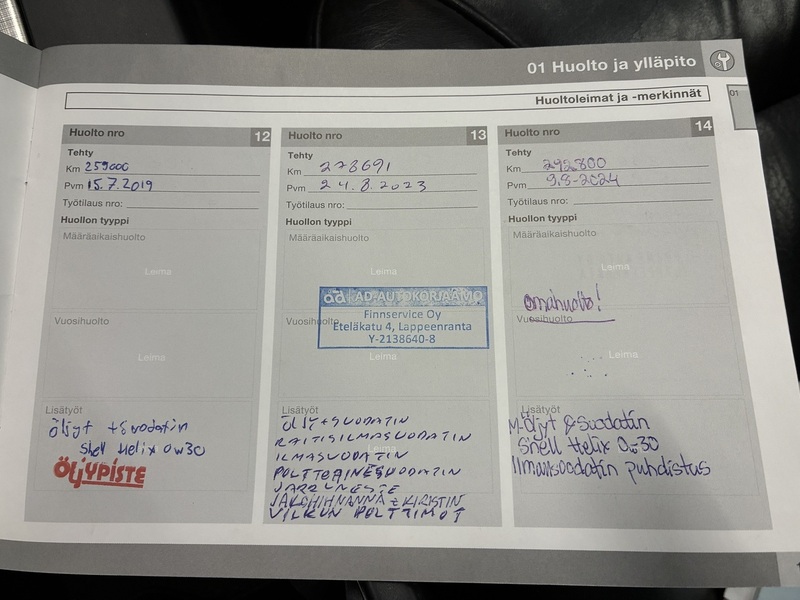 01 Huolto ja ylläpito
01
Huoltoleimat ja -merkinnät
Huolto nro 12
Tehty
Km 259000
Pvm 15.7.2019
Työtilaus nro:
Huollon tyyppi
Määräaikaishuolto
Leima
Vuosihuolto
Leima
Lisätyöt
Öljyt + Suodatin
Shell Helix 0w30
ÖLJYPISTE
Huolto nro 13
Tehty
Km 278691
Pvm 24.8.2023
Työtilaus nro:
Huollon tyyppi
Määräaikaishuolto
Leima
ad AD-AUTOKORJAAMO
Finnservice Oy
Eteläkatu 4, Lappeenranta
Y-2138640-8
Vuosihuolto
Leima
Lisätyöt
ÖLJY+SUODATIN
RAITISILMASUODATIN
ILMASUODATIN
POLTTOAINESUODATIN
JARRUNESTE
JAKOHIHNANNA KIRISTIN
VILKUN POLTTIMOT
Huolto nro 14
Tehty
Km 292800
Pvm 9.8-2024
Työtilaus nro:
Huollon tyyppi
Määräaikaishuolto
Leima
omahuolto!
Vuosihuolto
Leima
Lisätyöt
M-Öljyt & Suodatin
Shell Helix 0w-30
Ilmansuodatin puhdistus